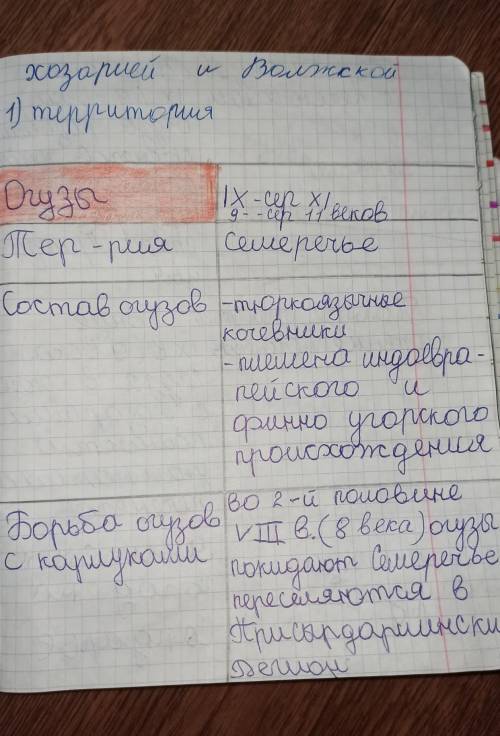 хозарией и Волжской
1) территория
Огузы
IX -сер XI
9 - -сер 11 веков
Тер - рия
Семеречье
Состав огузов
-тюркоязычные
кочевники
-племена индоевра-
пейского и
финно угорского
происхождения
Борьба огузов
с карлуками
Во 2-й половине
VIII в.(8 века) огузы
покидают Семеречье
переселяются в
Присырдарьински
регион